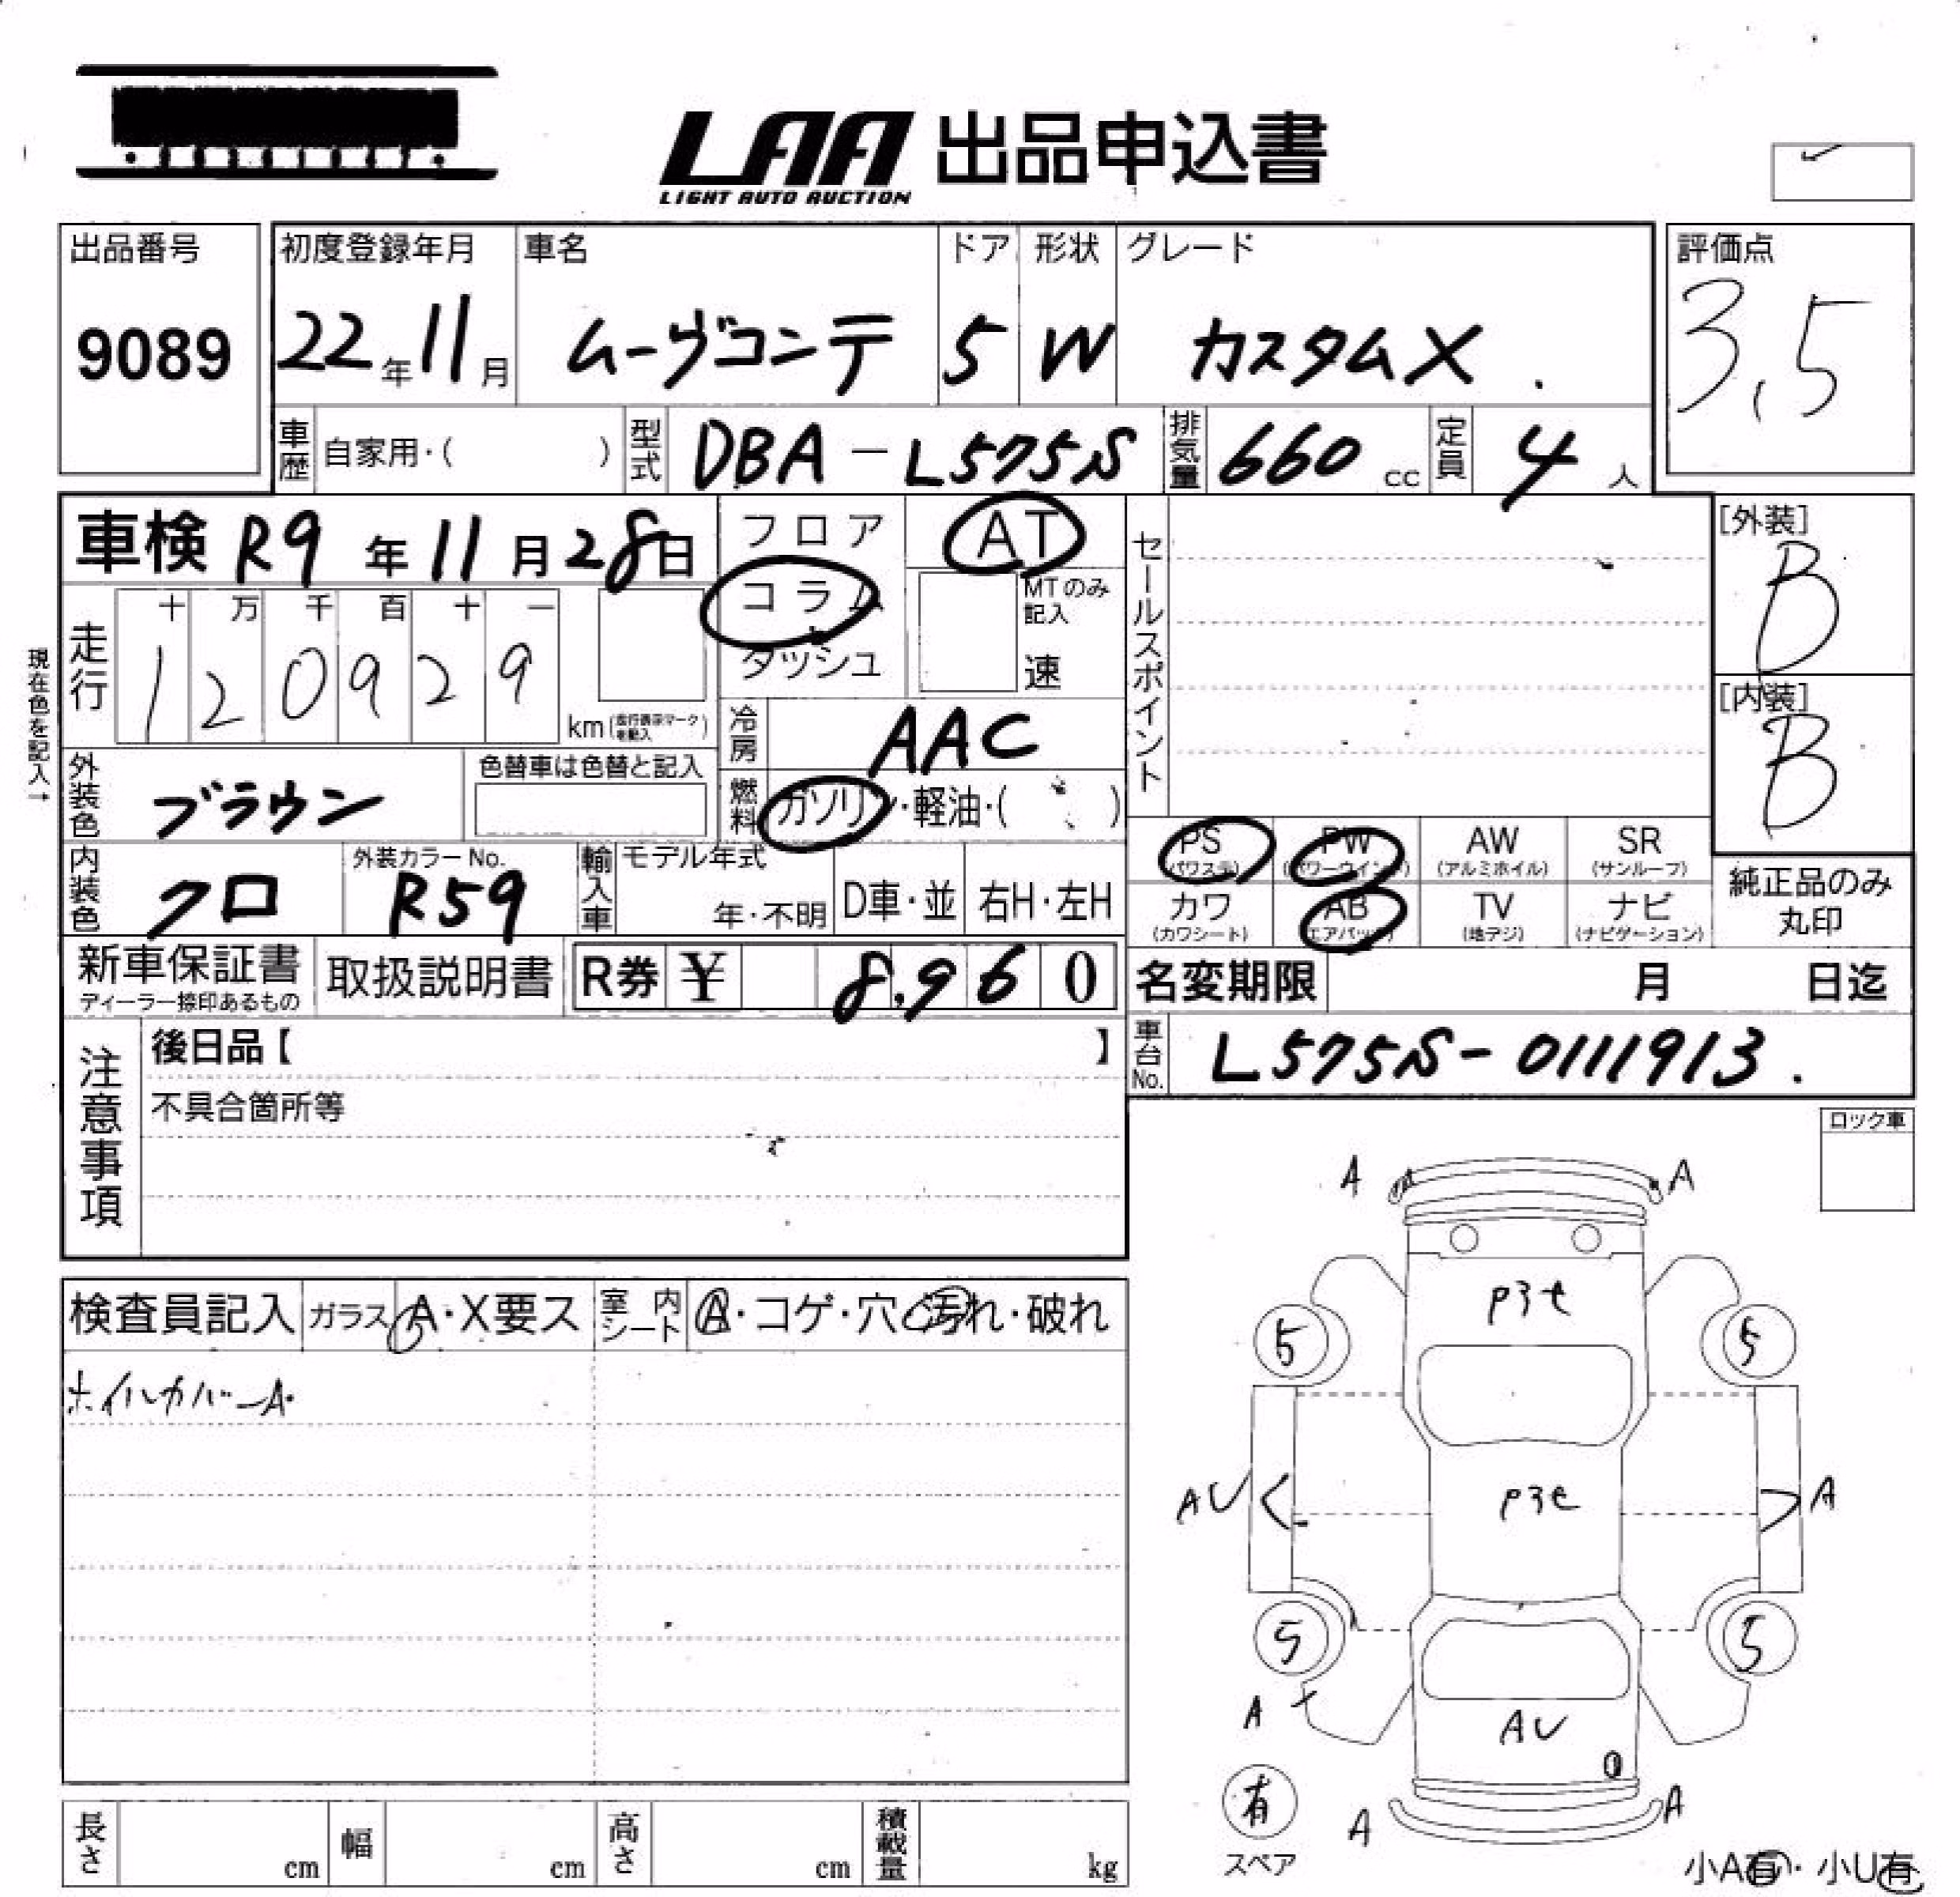 LAA 出品申込書
LIGHT AUTO AUCTION
出品番号
9089
初度登録年月
22年11月
車名
ムーヴコンテ
ドア
5
形状
W
グレード
カスタムX
評価点
3.5
車歴 自家用・( )
型式 DBA-L575S
排気量 660 cc
定員 4 人
車検 R9年11月28日
フロア
コラム
ダッシュ
AT
MTのみ記入
速
セールスポイント
[外装]
B
[内装]
B
現在色を記入→
走行
十 万 千 百 十 一
1 2 0 9 2 9
km(走行表示マークを記入)
冷房 AAC
燃料 ガソリン・軽油・( )
外装色 ブラウン
色替車は色替と記入
内装色 クロ
外装カラーNo.
R59
輸入車
モデル年式
年・不明
D車・並
右H・左H
PS (パワステ)
PW (パワーウインド)
AW (アルミホイル)
SR (サンルーフ)
カワ (カワシート)
AB (エアバッグ)
TV (地デジ)
ナビ (ナビゲーション)
純正品のみ丸印
新車保証書
ディーラー捺印あるもの
取扱説明書
R券 ¥ 8,960
名変期限 月 日迄
車台No. L575S-0111913
注意事項
後日品【 】
不具合箇所等
ロック車
検査員記入
ガラス A・X要ス
室内シート A・コゲ・穴・汚れ・破れ
ホイルカバーA
A A
5 5
AU A
5 5
A
AU
A A
有
スペア
小A有・小U有
長さ cm
幅 cm
高さ cm
積載量 kg